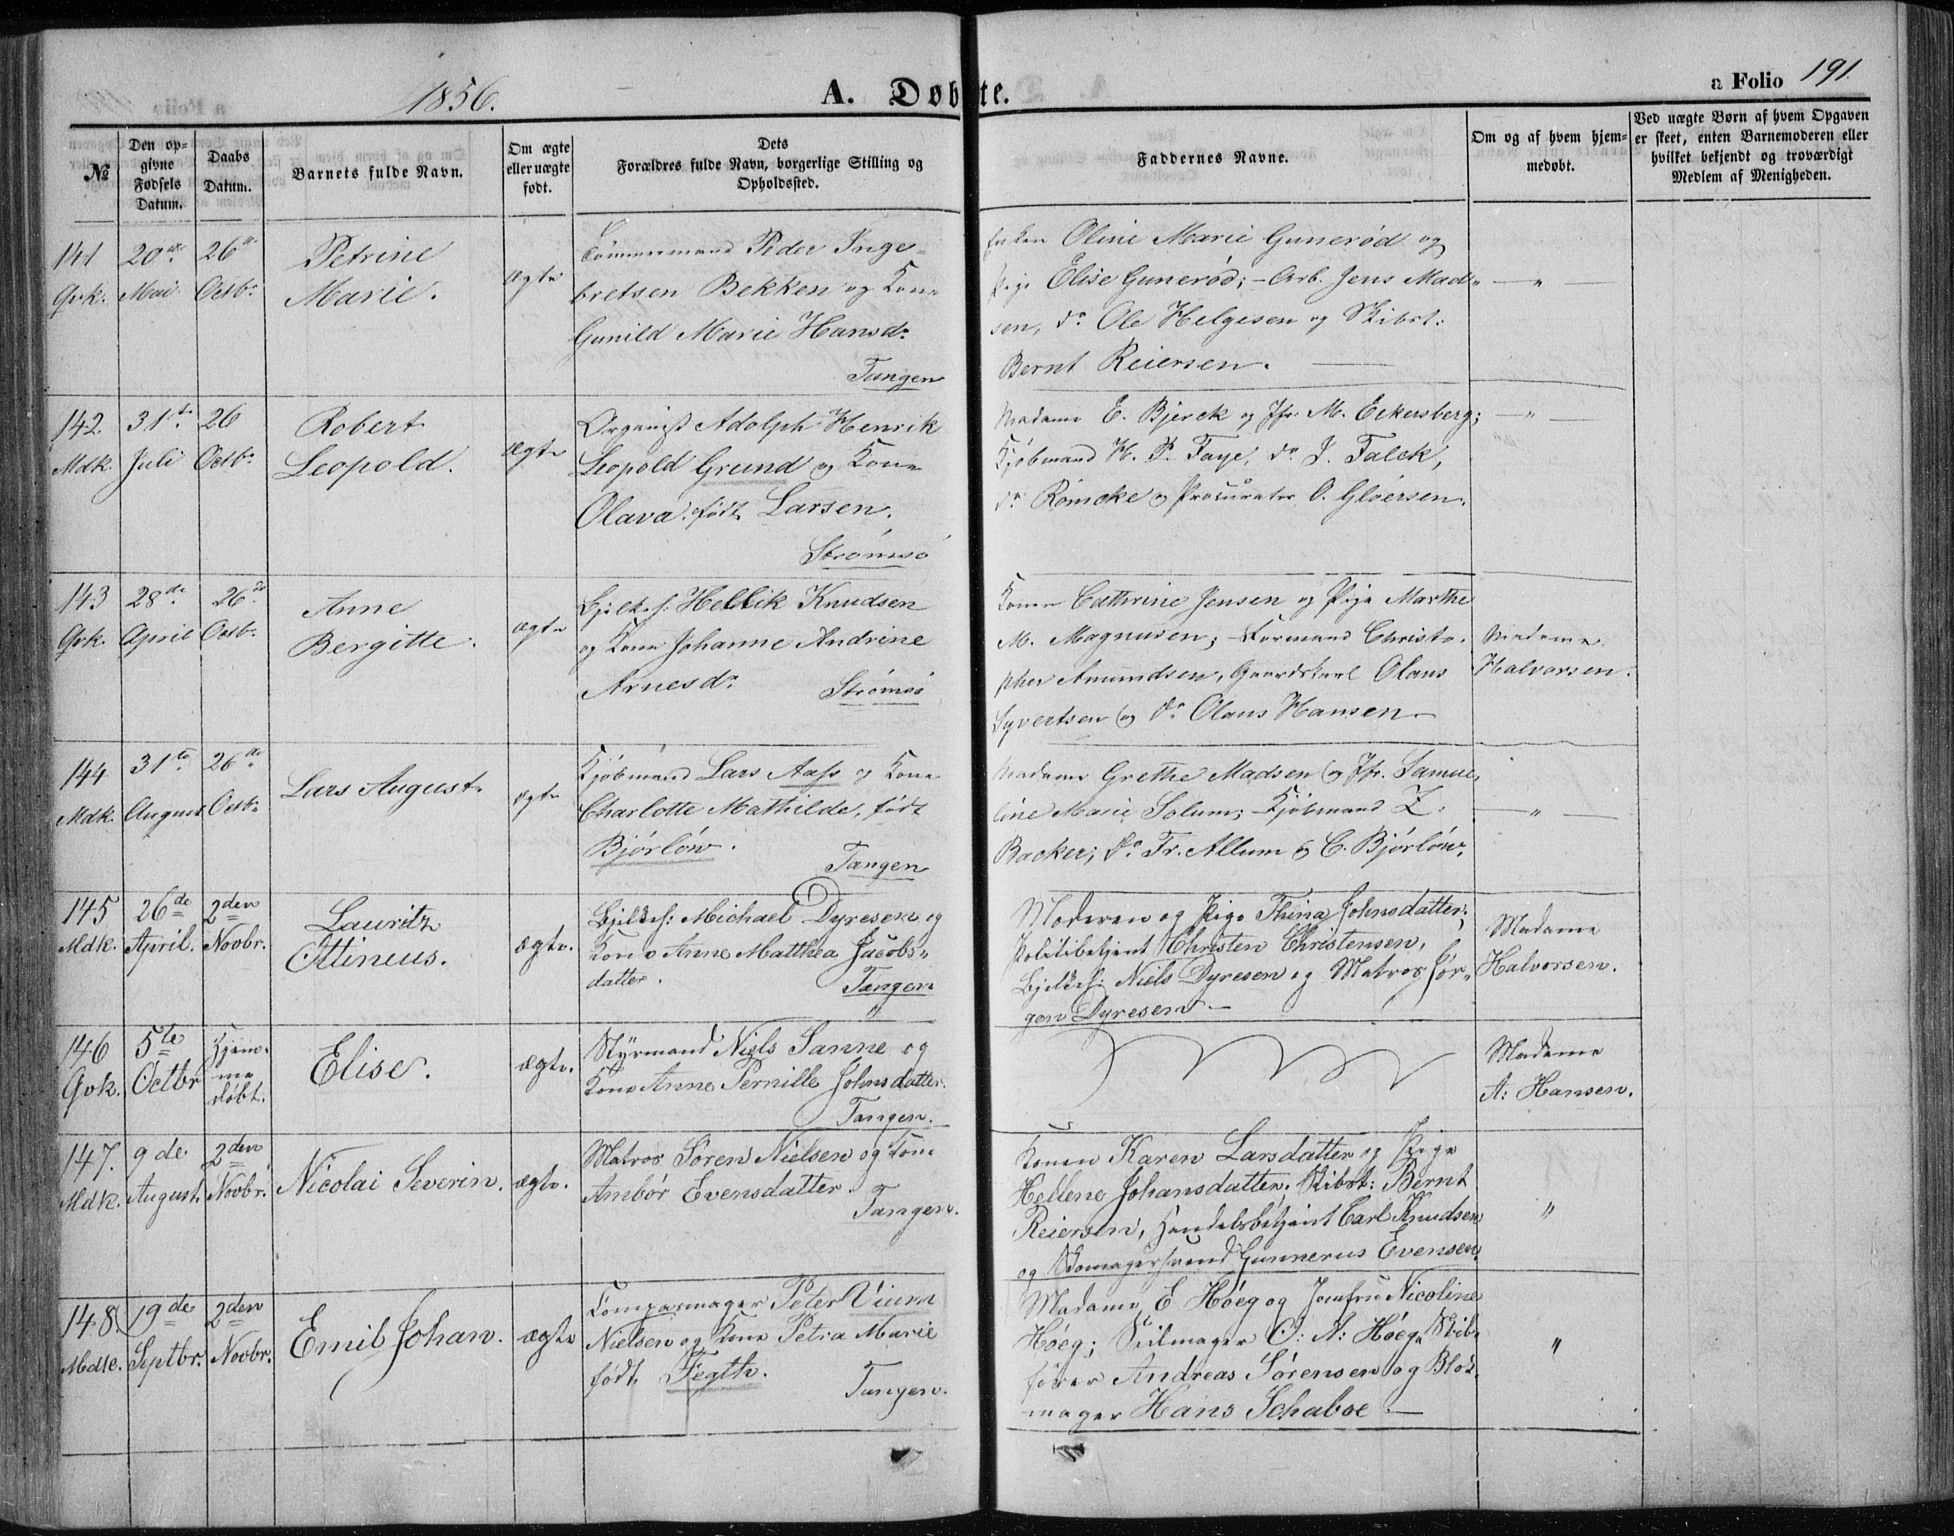 1856.
A. Døbte.
a Folio 191.
№
Den opgivne Fødsels Datum.
Daabs Datum.
Barnets fulde Navn.
Om ægte eller uægte født.
Dets Forældres fulde Navn, borgerlige Stilling og Opholdssted.
Faddernes Navne.
Om og af hvem hjemmedøbt.
Ved uægte Børn af hvem Opgaven er skeet, enten Barnemoderen eller hvilket bekjendt og troværdigt Medlem af Menigheden.
141 Qvk.
20de Mai
26de Octbr
Petrine
Marie.
ægte
Tømmermand Peder Inge-
bretsen Bekken og Kone
Gunild Marie Hansdr
Tangen
Enken Oline Marie Gunerød og
Pige Elise Gunerød; - Arb. Jens Mad-
sen, do Ole Helgesen og Skibst:
Bernt Reiersen.
— " —
142. Mdk.
31te Juli
26 Octbr
Robert
Leopold.
ægte
Organist Adolph Henrik
Leopold Grund og Kone
Olava født Larsen.
Strømsø
Madame E. Bjerck og Jfr. M. Eckersberg;
Kjøbmand H. P. Faye, do J. Falck,
do Rømcke og Procurator O. Gløersen.
— " —
143 Qvk.
28de April
26de Octbr
Anne
Bergitte.
ægte
Bjelkef: Hellik Knudsen
og Kone Johanne Andrine
Arnesdr
Strømsø
Kone Cathrine Jensen og Pige Marthe
M. Magnusen; Formand Christo-
pher Amundsen, Gaardskarl Olaus
Syvertsen og do Olaus Hansen
Madame
Halvorsen.
144 Mdk.
31te August
26de Octbr
Lars August
ægte
Kjøbmand Lars Aass og Kone
Charlotte Mathilde, født
Bjørløw.
Tangen
Madame Grethe Madsen og Jfr. Samue-
line Marie Solum; Kjøbmand Z.
Backer; do Fr. Allum og C. Bjørløw.
— " —
145 Mdk.
26de April.
2den Novbr.
Lauritz
Ottineus.
ægte.
Bjelkef: Michael Dyresen og
Kone Anne Matthea Jacobs-
datter.
Tangen
Moderen og Pige Thina Johnsdatter;
Politibetjent Christen Christensen,
Bjelkef: Niels Dyresen og Matros Jør-
gen Dyresen —
Madame
Halvorsen.
146 Qvk.
5te Octbr
Hjem-
me
døbt.
Elise.
ægte.
Styrmand Niels Sanne og
Kone Anne Pernille Johnsdatter.
Tangen.
Madame
A: Hansen.
147. Mdk.
9de August.
2den Novbr.
Nicolai Severin.
ægte.
Matros Søren Nielsen og Kone
Ambør Evensdatter.
Tangen.
Konen Karen Larsdatter og Pige
Hellene Johansdatter. Skibst: Bernt
Reiersen, Handelsbetjent Carl Knudsen
og Skomagersvend Gunnerus Evensen.
"
148. Mdk.
19de Septbr.
2den Novbr.
Emil Johan.
ægte
Compasmager Peter Vium
Nielsen og Kone Petra Marie
født Fegth.
Tangen.
Madame E Høeg og Jomfru Nicoline
Høeg; Seilmager C: N: Høeg, Skibs-
fører Andreas Sørensen og Blok-
mager Hans Schaboe. —
"